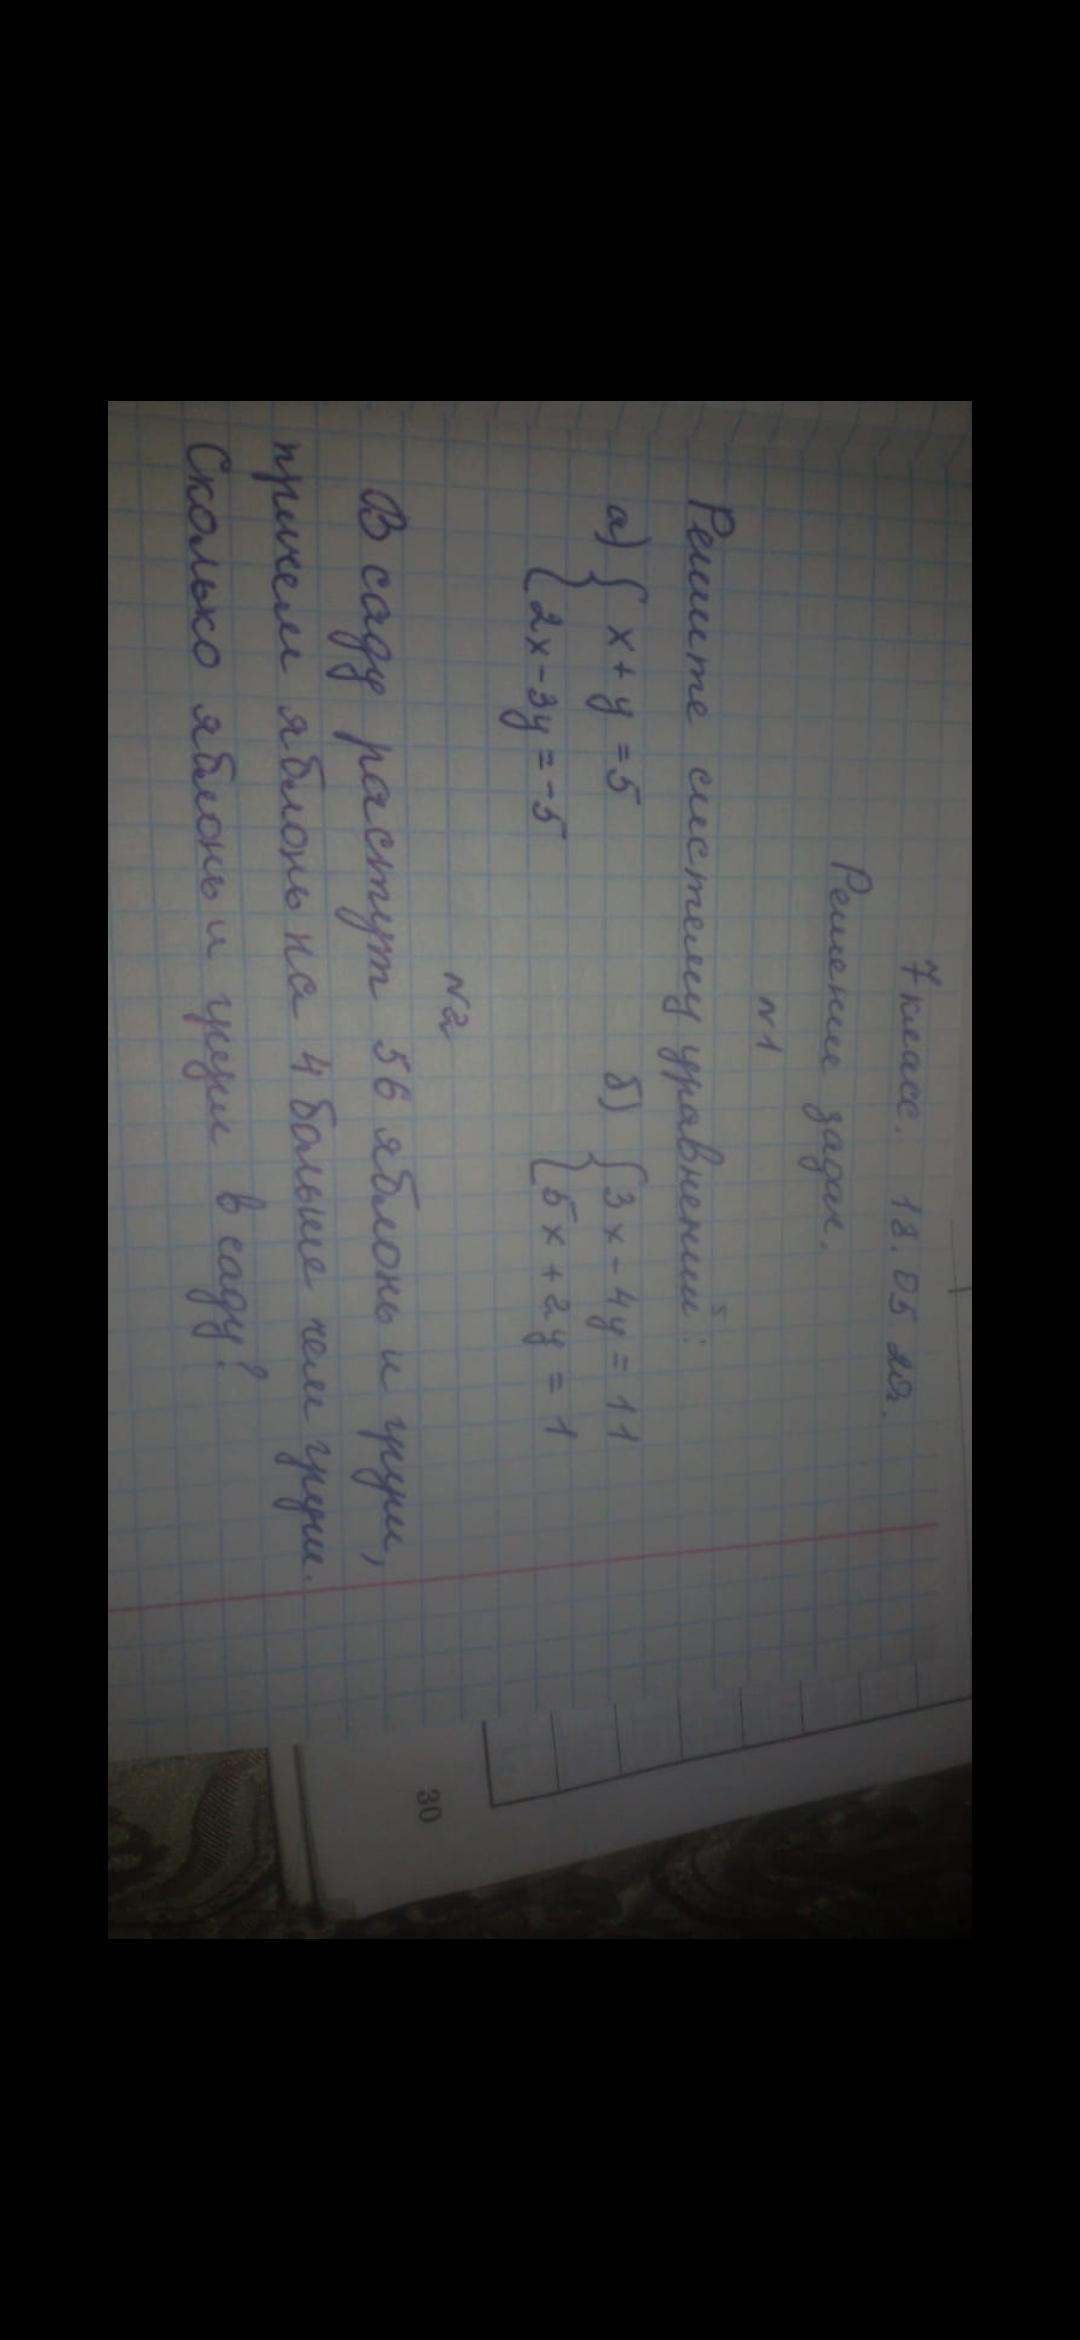 7 класс. 18.05 20г.
Решение задач.
N1
Решите систему уравнений:
а) { x + y = 5 б) { 3x - 4y = 11
{ 2x - 3y = -5 { 5x + 2y = 1
N2
В саду растут 56 яблонь и груш,
причем яблонь на 4 больше чем груш.
Сколько яблонь и груш в саду?
30